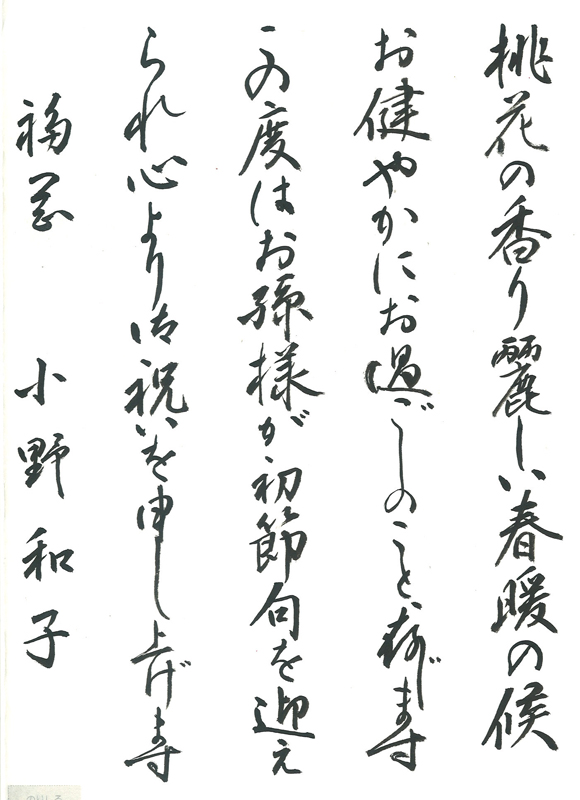 桃花の香り麗しい春暖の候
お健やかにお過ごしのこと存じます
この度はお孫様が初節句を迎え
られ心より御祝いを申し上げます
福岡 小野和子